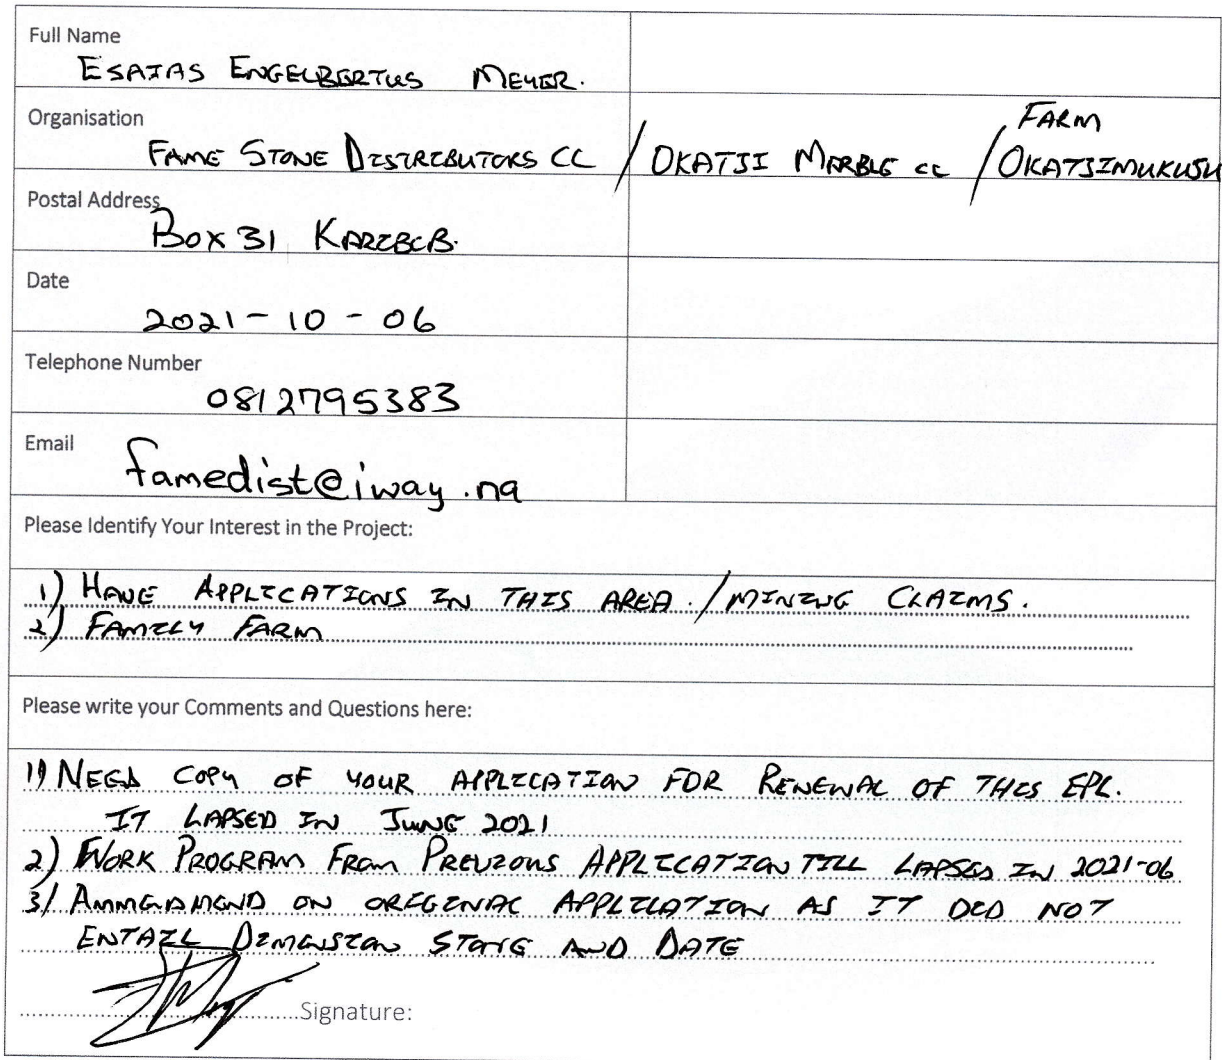 Full Name
ESAIAS ENGELBERTUS MEYER.
Organisation
FAME STONE DISTRIBUTORS CC / OKATJI MARBLE CC / FARM OKATJIMUKUSU
Postal Address
BOX 31 KARIBIB.
Date
2021-10-06
Telephone Number
0812795383
Email
famedist@iway.na
Please Identify Your Interest in the Project:
1) HAVE APPLICATIONS IN THIS AREA. / MINING CLAIMS.
2) FAMILY FARM
Please write your Comments and Questions here:
1) NEED COPY OF YOUR APPLICATION FOR RENEWAL OF THIS EPL.
IT LAPSED IN JUNE 2021
2) WORK PROGRAM FROM PREVIOUS APPLICATION TILL LAPSED IN 2021-06
3) AMMENDMEND ON ORIGINAL APPLICATION AS IT DID NOT
ENTAIL DIMENSION STONE AND DATE
Signature: